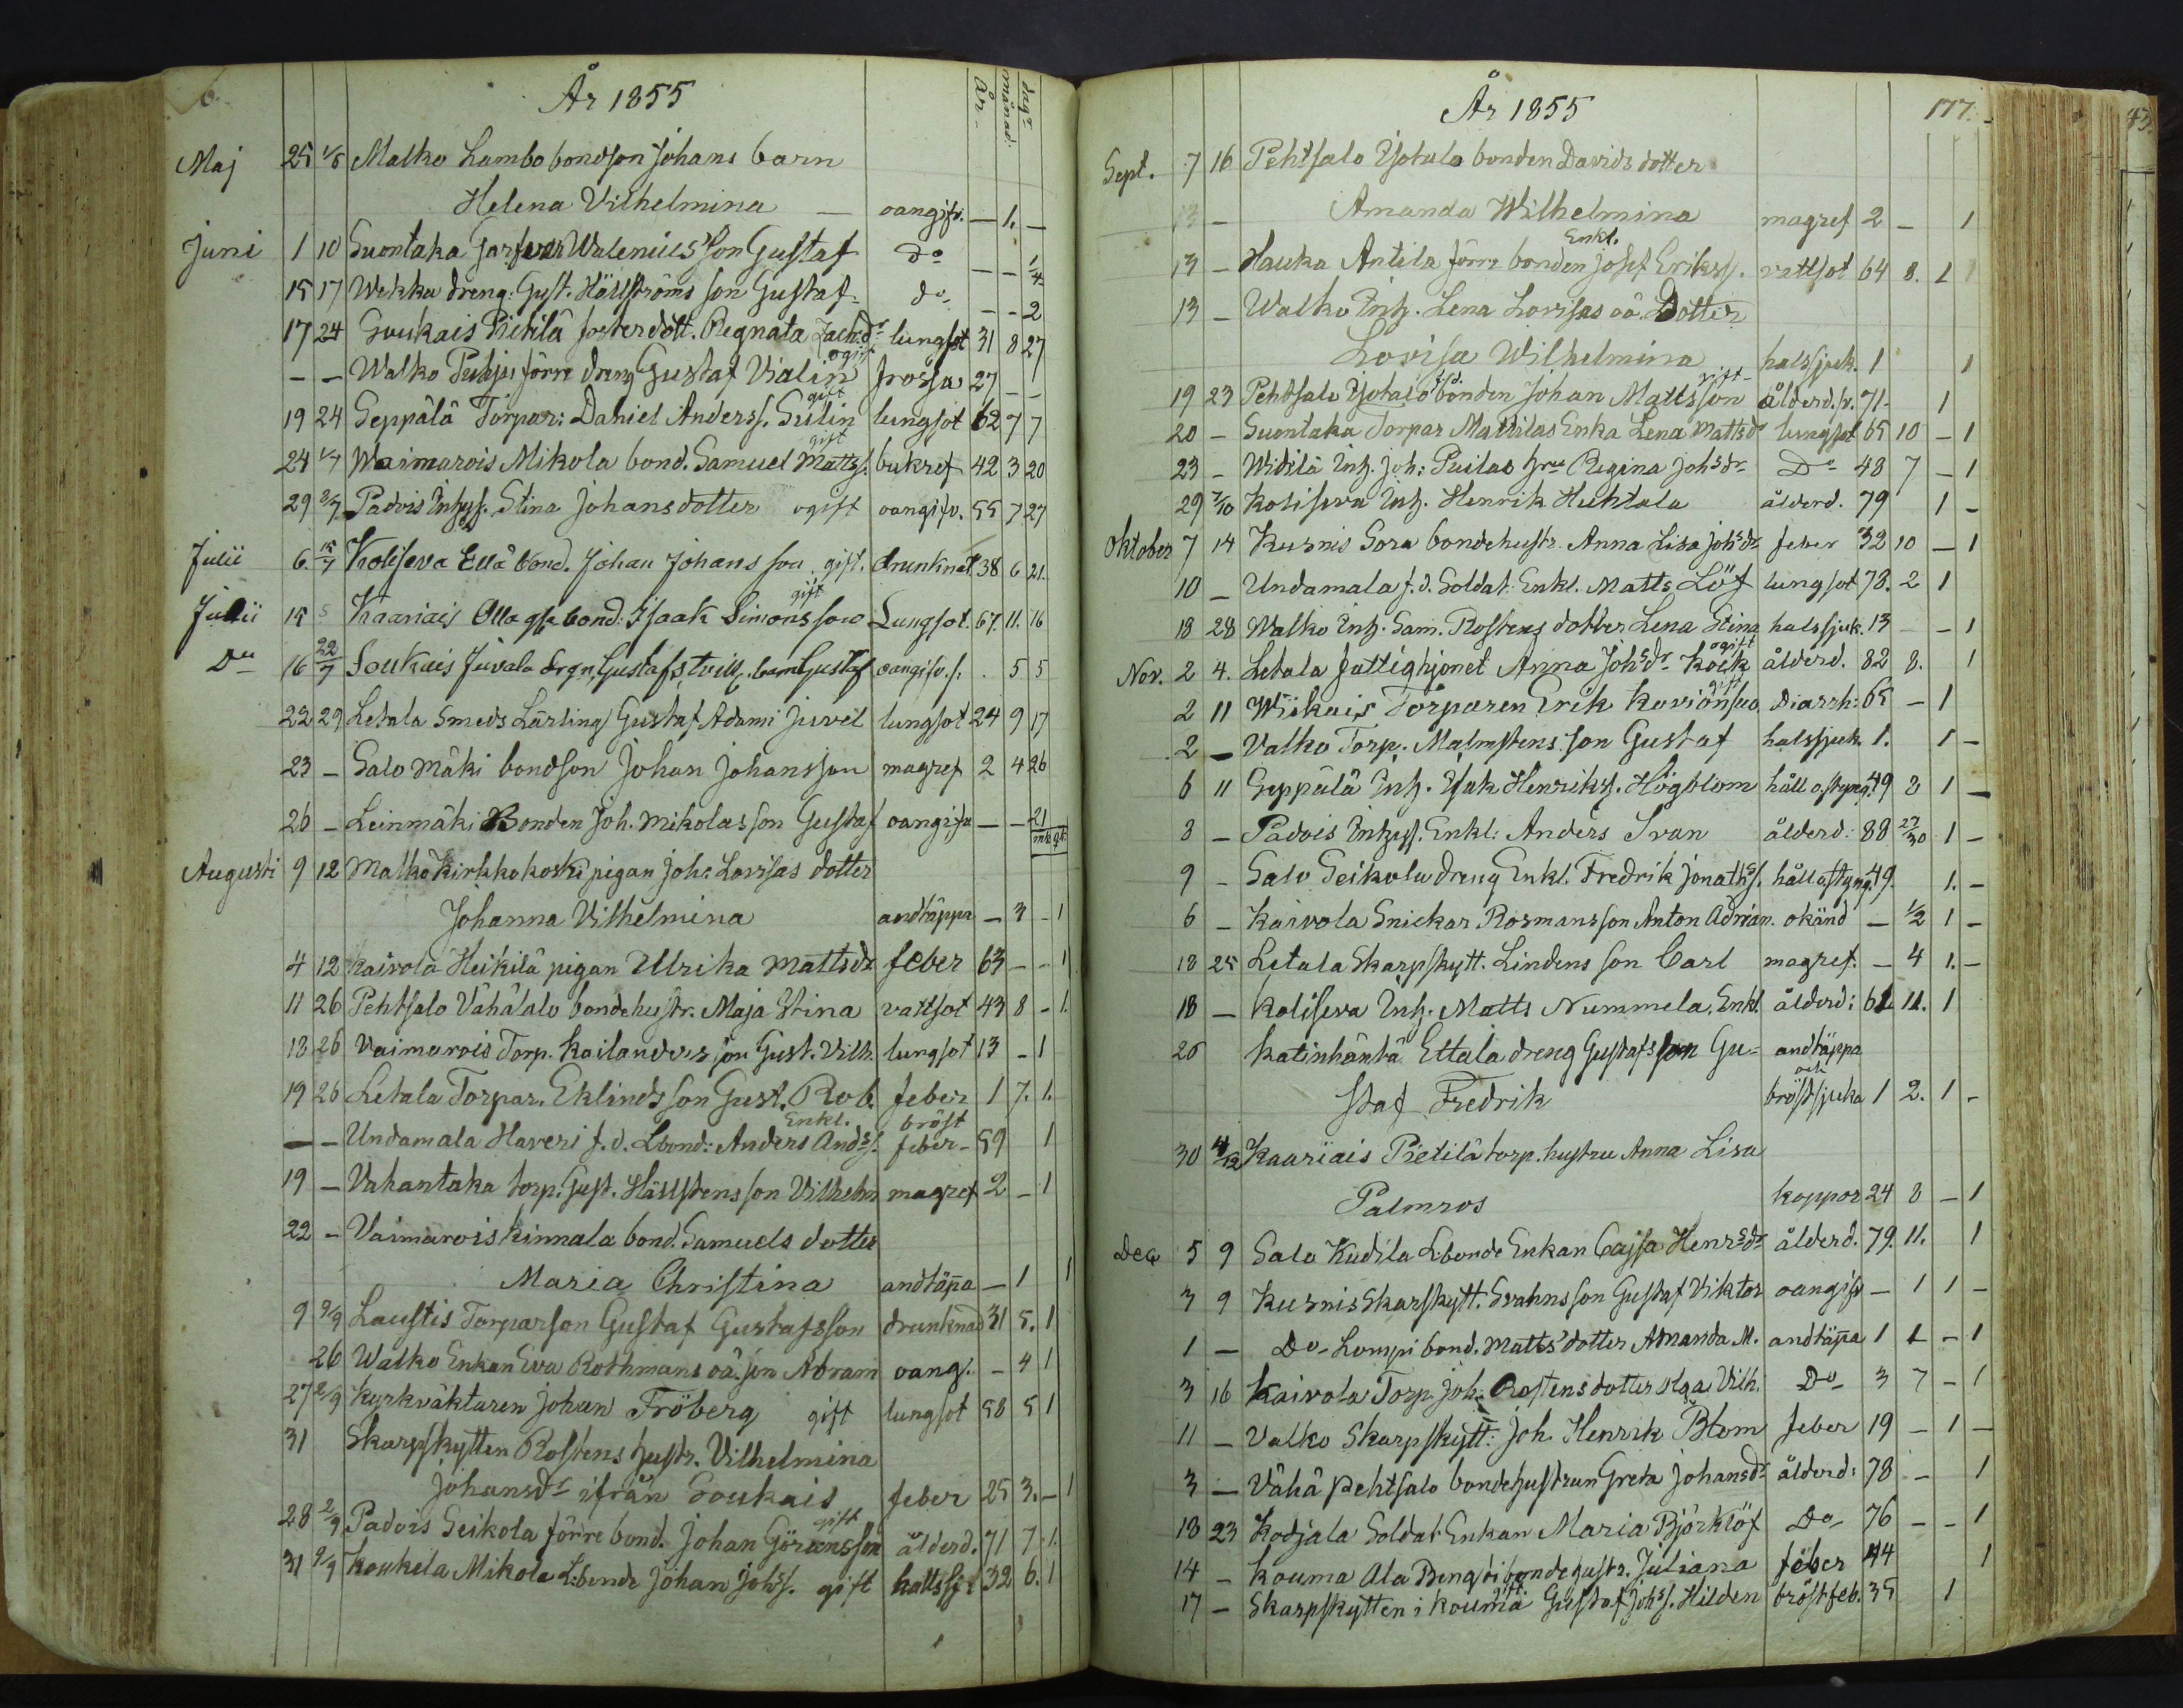 6.
År 1855
År månad: dagr
Maj 25 1/8 Malko Lambo bondson Johans barn
Helena Vilhelmina — oangifv. — 1. —
Juni 1 10 Suontaka Garfvar Walenius' son Gustaf do — — 1/4
15 17 Wekka dreng: Gust. Hällströms son Gustaf do — — 2
17 24 Soukais Pietilä fosterdott. Regnata Zach:dr lungsot 31 8 27
ogift
— — Walko Puhju förre dreng Gustaf Vialin frossa 27 — —
gift
19 24 Seppälä Torpar: Daniel Anderss. Sulin lungsot 62 7 7
gift
24 1/7 Waimarois Mikola bond. Samuel Matts. bukref 42 3 20
29 8/7 Padvis Inhys. Stina Johansdotter ogift oangifv. 55 7 27
Julii 6. 15/7 Koliseva Ellä bond. Johan Johansson gift. drunknat 38 6 21.
gift
Julii 15 8 Kaariais Olla gl. bond: Isaak Simonsson Lungsot. 67. 11. 16
Do 16 22/7 Soukais Juvala drgn. Gustafs tvill. barn Gustaf oangifv. . 5 5
22 29 Letala Smeds Lärling Gustaf Adami Juvel lungsot 24 9 17
23 — Salo Mäki bondson Johan Johansson magref 2 4 26
26 — Leinmäki Bonden Joh. Mikolas son Gustaf oangifv — — 21
mk gk
Augusti 9 12 Malko Kirkkokoski pigan Joh: Lovisas dotter
Johanna Vilhelmina andtäppa — 3 - 1
4 12 Kaivola Heikilä pigan Ulrika Mattsdr feber 63 — - 1
11 26 Pehtsalo Vähätalo bondehustr. Maja Stina vattsot 43 8 - 1.
13 26 Vaimarois Torp. Kailanders son Gust. Vilh. lungsot 13 — 1
19 26 Letala Torpar. Eklinds son Gust. Rob. feber 1 7. 1.
Enkl. bröst
— — Undamala Haveri f.d. Lbond: Anders Ands. feber - 59 1
19 — Vahantaka torp. Gust. Hällstens son Vilhelm magref 2 — 1
22 — Vaimarois Kinnala bond. Samuels dotter
Maria Christina andtäpa — 1 1
9 9/9 Laustis Torparson Gustaf Gustafsson drunknad 31 5. 1
26 Walko Enkan Eva Rothmans oä. son Abram oang. — 4 1
27 2/9 Kyrkväktaren Johan Fröberg gift lungsot 58 5 1
31 Skarpskytten Rostens hustr. Vilhelmina
Johansdr ifrån Soukais feber 25 3. — 1
gift
28 2/9 Padois Seikola förre bond. Johan Göransson ålderd. 71 7 1.
31 9/9 Koukela Mikola L:bonde Johan Johs. gift 32 6. 1
År 1855 177.
Sept. 7 16 Pehtsalo Isotalo bonden Davids dotter
13 — Amanda Wilhelmina magref 2 — 1
Enkl.
13 — Hauka Antila förre bonden Josef Erikss. vattsot 64 8. 1
13 — Walko Inh. Lena Lovisas oä. Dotter
Lovisa Wilhelmina halssjuk. 1 1
gift
19 23 Pehtsalo Isotalo f.d. bonden Johan Mattsson ålderd.sv. 71. 1
20 — Suontaka Torpar Mattilas Enka Lena Mattsdr lungsot 65 10 — 1
23 — Widilä Inh. Joh: Puilas hru Regina Johsdr Do 48 7 — 1
29 7/10 Koliseva Inh. Henrik Huhtala ålderd. 79 1 —
Oktober 7 14 Kusnis Sora bondehustr. Anna Lisa Johsdr feber 32 10 — 1
10 — Undamala f.d. Soldat. Enkl. Matts Löf lungsot 78. 2 1
18 28 Walko Inh. Sam. Rostens dotter Lena Stina halssjuk. 13 — — 1
ogift
Nov. 2 4. Letala fattighjonet Anna Johsdr Kock ålderd. 82 8. 1
gift
2 11 Wiikais Torparen Erik Kavionsuo Diarrh: 65 — 1
2 — Valko Torp. Malmstens son Gustaf halssjuk. 1. 1 —
6 11 Seppälä Inh. Isak Henrikss. Högblom håll o. styng. 49 8 1 —
8 — Padois Inhys. Enkl: Anders Svan ålderd: 88 27/30 1 —
9 — Salo Seikola dreng Enkl. Fredrik Jonaths. håll o. styng. 49. 1. —
6 — Kaivola Snickar Rosmans son Anton Adrian. okänd — 1/2 1 —
18 25 Letala Skarpskytt. Lindens son Carl magref. — 4 1. —
18 — Koliseva Inh. Matts Nummela. Enkl. ålderd: 61. 11. 1
26 Katinhäntä Ettala dreng Gustafs son Gu- andtäppa
och
staf Fredrik bröstsjuka 1 2. 1 —
30 4/12 Kaariais Pietilä torp. hustru Anna Lisa
Palmros koppor 24 8 — 1
Dec 5 9 Salo Kudila L:bonde Enkan Cajsa Henrsdr ålderd. 79. 11. 1
3 9 Kusnis Skarskytt. Svahns son Gustaf Viktor oangifv — 1 1 —
1 — Do Lompi bond. Matts' dotter Amanda M. andtäpa 1 1 — 1
3 16 Kaivola Torp. Joh. Rostens dotter Olga Vilh. Do 3 7 — 1
11 — Valko Skarpskytt: Joh. Henrik Blom feber 19 — 1 —
3 — Vähä Pehtsalo bondehustrun Greta Johansdr ålderd: 78 — 1
13 23 Kodjala Soldat Enkan Maria Björklöf Do 76 — — 1
14 — Kouma Ala Bengti bondehustr. Juliana feber 44 1
gift.
17 — Skarpskytten i Kouma Gustaf Johs. Hilden bröstfeb. 35 1
43.